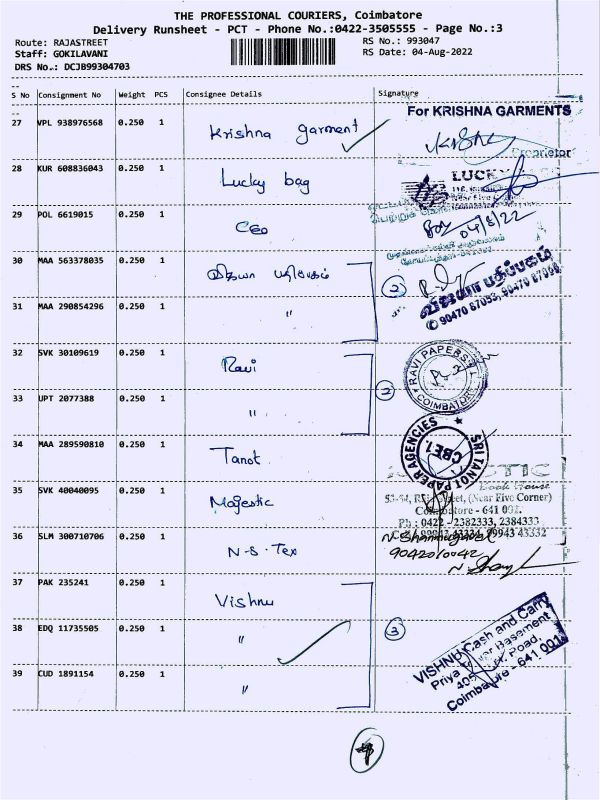 THE PROFESSIONAL COURIERS, Coimbatore
Delivery Runsheet - PCT - Phone No.:0422-3505555 - Page No.:3
Route: RAJASTREET
RS No.: 993047
Staff: GOKILAVANI
RS Date: 04-Aug-2022
DRS No.: DCJB99304703
S No Consignment No Weight PCS Consignee Details Signature
27 VPL 938976568 0.250 1 Krishna garment
For KRISHNA GARMENTS
Proprietor
28 KUR 608836043 0.250 1 Lucky bag
LUCKY
29 POL 6619015 0.250 1 CEO
04/8/22
30 MAA 563378035 0.250 1 விஜயா பதிப்பகம்
2
விஜயா பதிப்பகம்
31 MAA 290854296 0.250 1 "
✆ 90470 87053, 90470 87058
32 SVK 30109619 0.250 1 Ravi
RAVI PAPERS
COIMBATORE
33 UPT 2077388 0.250 1 "
2
34 MAA 289590810 0.250 1 Tanot
SRI TANOT PAPER AGENCIES
CBE1.
35 SVK 40040095 0.250 1 Majestic
Book House
(Near Five Corner)
Coimbatore - 641 001.
Ph : 0422 - 2382333, 2384333
36 SLM 300710706 0.250 1 N-S. Tex
37 PAK 235241 0.250 1 Vishnu
38 EDQ 11735505 0.250 1 "
3
39 CUD 1891154 0.250 1 "
VISHNU Cash and Carry
Basement
Road,
Coimbatore - 641 001